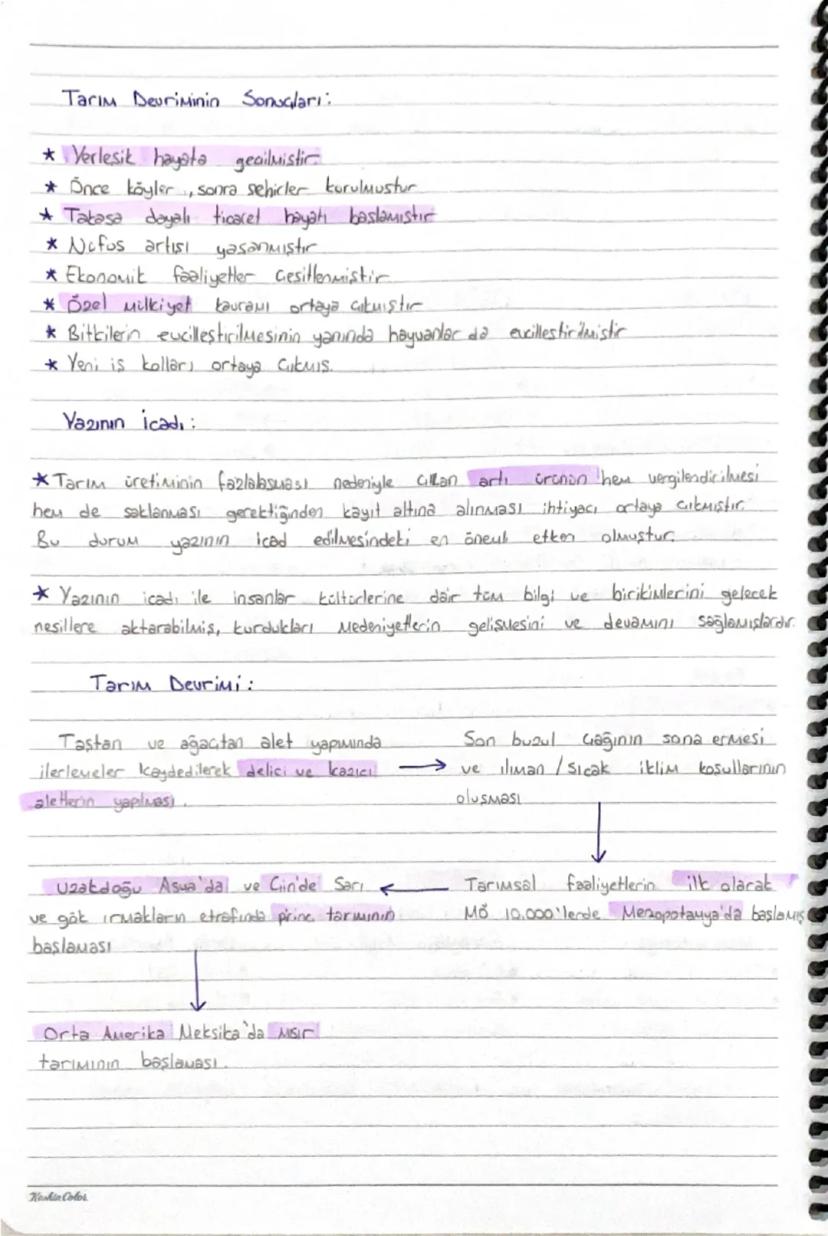 Tarım Devriminin Sonuçları:
* Yerleşik hayata geçilmiştir.
* Önce köyler, sonra şehirler kurulmuştur
* Takasa dayalı ticaret hayatı başlamıştır
* Nüfus artışı yaşanmıştır
* Ekonomik faaliyetler çeşitlenmiştir
* Özel mülkiyet kavramı ortaya çıkmıştır
* Bitkilerin evcilleştirilmesinin yanında hayvanlar da evcilleştirilmiştir
* Yeni iş kolları ortaya çıkmış.
Yazının İcadı:
* Tarım üretiminin fazlalaşması nedeniyle çıkan artı ürünün hem vergilendirilmesi
hem de saklanması gerektiğinden kayıt altına alınması ihtiyacı ortaya çıkmıştır.
Bu durum yazının icad edilmesindeki en önemli etken olmuştur.
* Yazının icadı ile insanlar kültürlerine dair tüm bilgi ve birikimlerini gelecek
nesillere aktarabilmiş, kurdukları medeniyetlerin gelişmesini ve devamını sağlamışlardır.
Tarım Devrimi:
Taştan ve ağaçtan alet yapımında
ilerlemeler kaydedilerek delici ve kazıcı
aletlerin yapılması.
→
Son buzul çağının sona ermesi
ve ılıman / sıcak iklim koşullarının
oluşması
↓
Tarımsal faaliyetlerin ilk olarak
MÖ 10.000'lerde Mezopotamya'da başlamış
←
Uzakdoğu Asya'da ve Çin'de Sarı
ve gök ırmakların etrafında pirinç tarımının
başlaması
↓
Orta Amerika Meksika'da mısır
tarımının başlaması.
Keskin Color